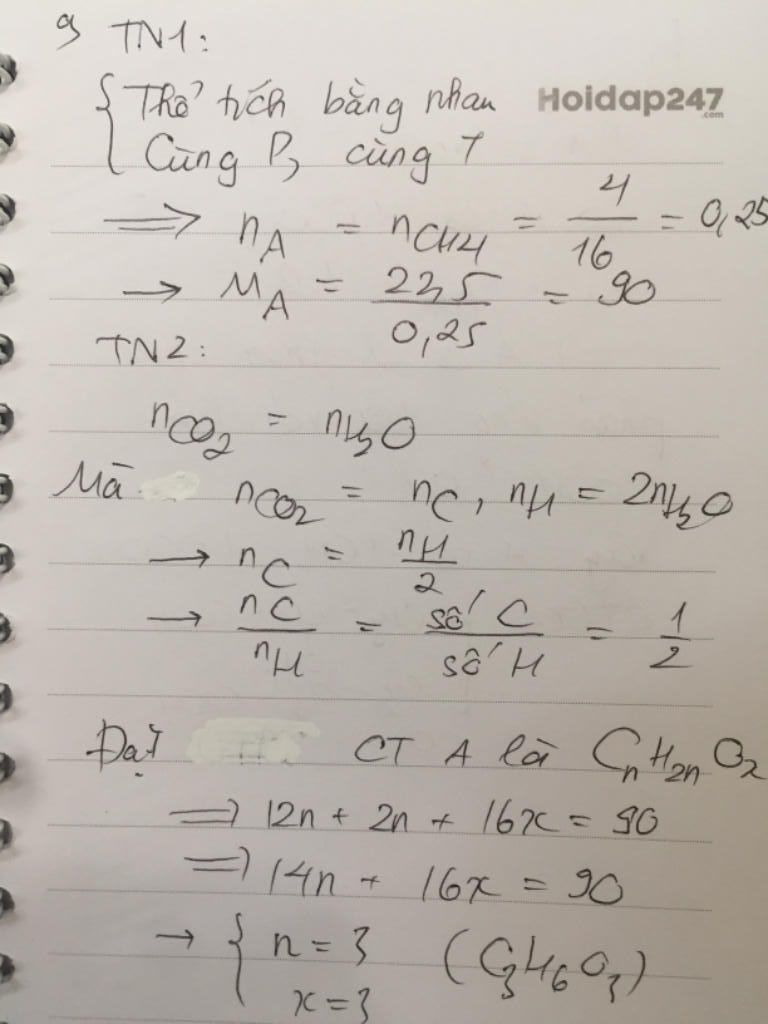 a) TN1:
Hoidap247
.com
{ Thể tích bằng nhau
Cùng P, cùng T
⟹ nA = nCH4 = 4/16 = 0,25
→ MA = 22,5/0,25 = 90
TN2:
nCO2 = nH2O
Mà nCO2 = nC, nH = 2nH2O
→ nC = nH/2
→ nC/nH = số C/số H = 1/2
Đặt CT A là CnH2nOx
⟹ 12n + 2n + 16x = 90
⟹ 14n + 16x = 90
→ { n = 3 (C3H6O3)
x = 3